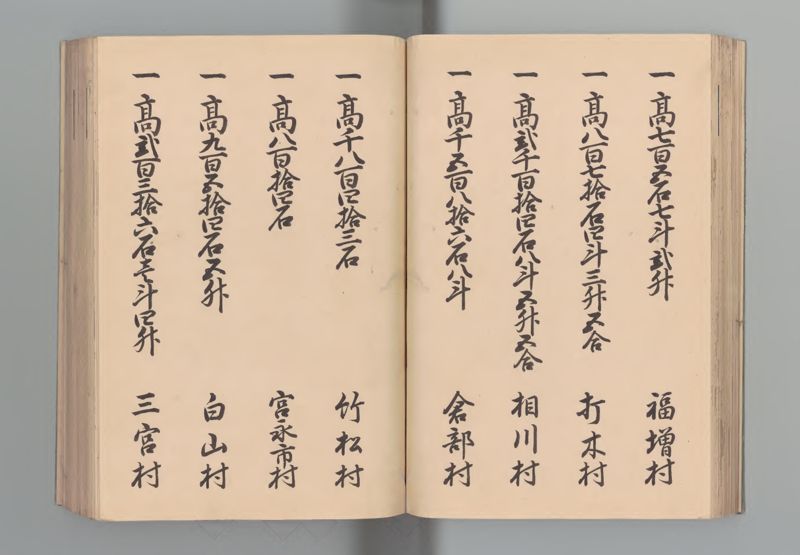 一 高七百五石七斗弐升 福増村
一 高八百七拾石四斗三升五合 打木村
一 高弐千百拾四石八斗五升五合 相川村
一 高千五百八拾六石八斗 倉部村
一 高千八百四拾三石 竹松村
一 高八百拾四石 宮永市村
一 高九百五拾四石五升 白山村
一 高弐百三拾六石壱斗四升 三宮村